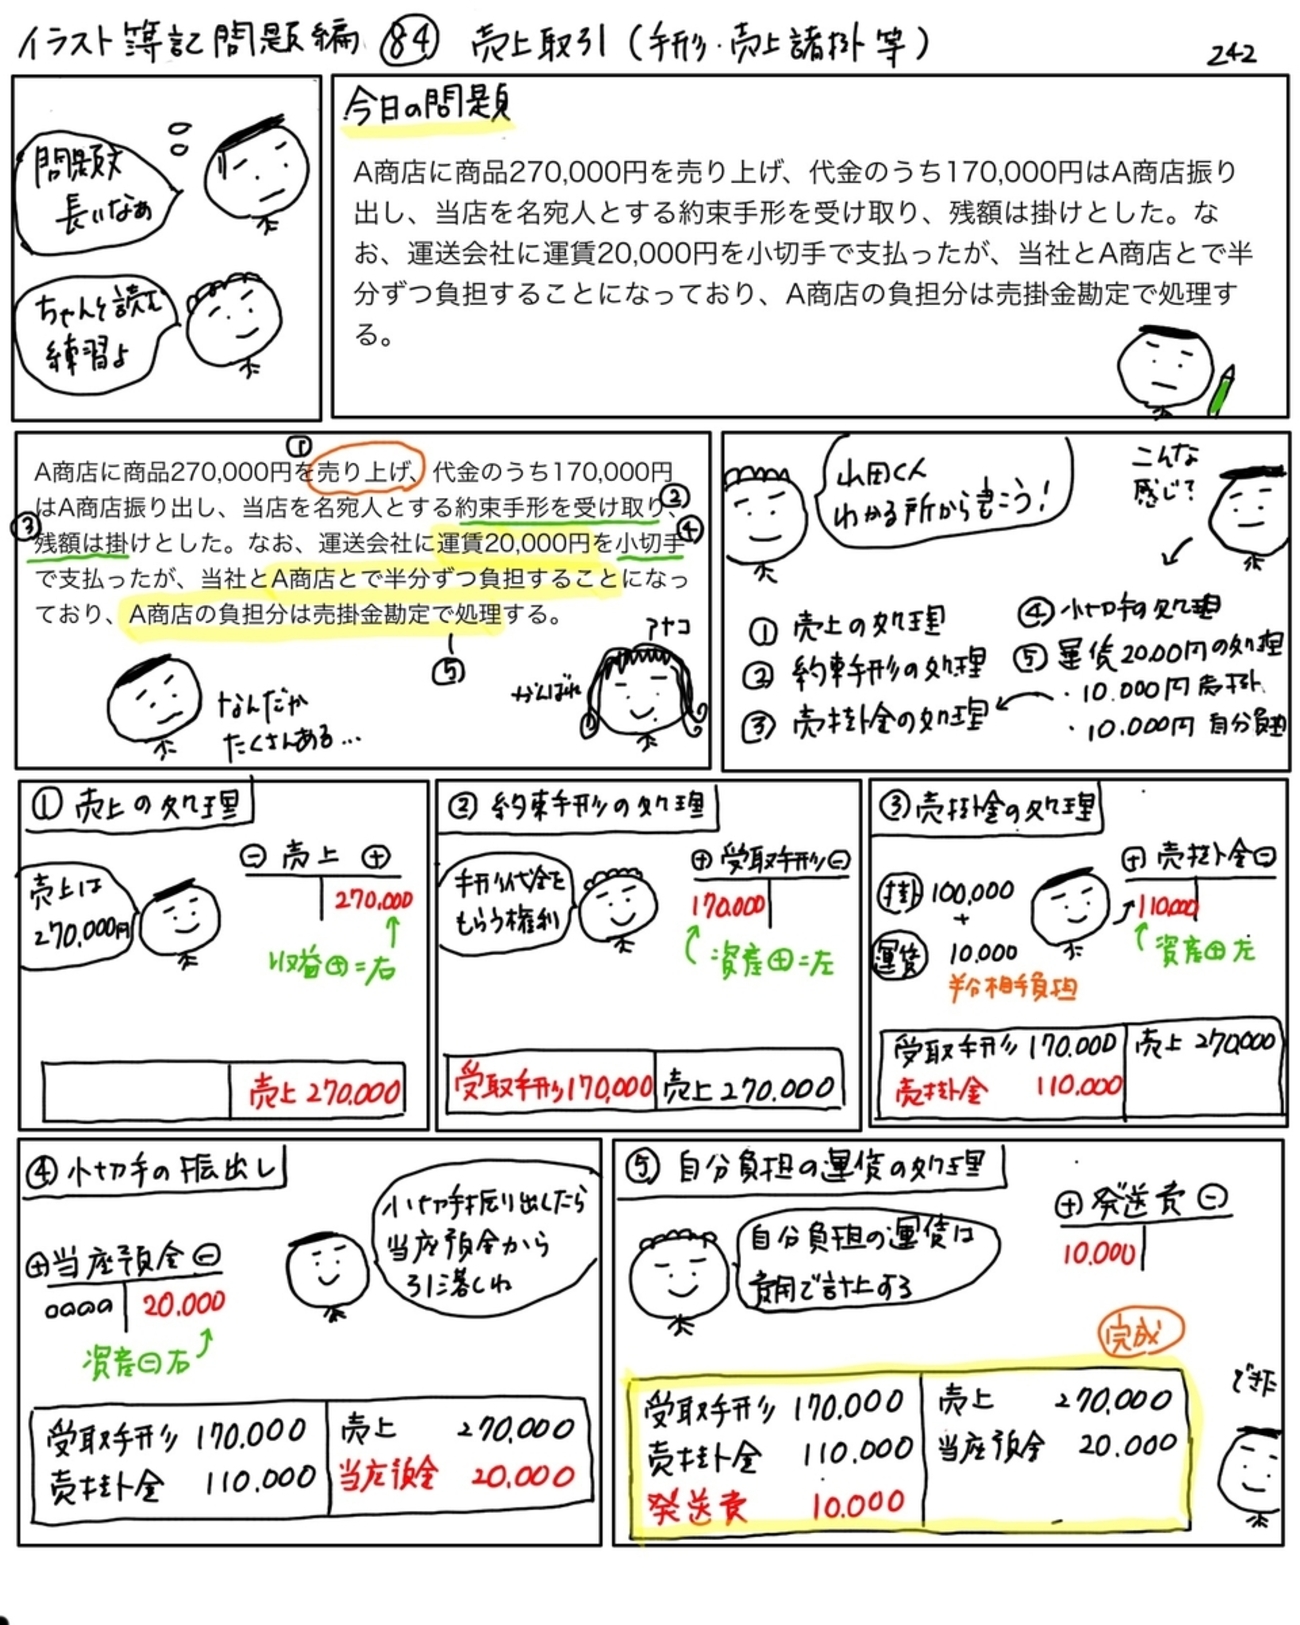 イラスト簿記問題編 84 売上取引(手形・売上諸掛等)
242
問題文
長いなぁ
ちゃんと読む
練習よ
今日の問題
A商店に商品270,000円を売り上げ、代金のうち170,000円はA商店振り
出し、当店を名宛人とする約束手形を受け取り、残額は掛けとした。な
お、運送会社に運賃20,000円を小切手で支払ったが、当社とA商店とで半
分ずつ負担することになっており、A商店の負担分は売掛金勘定で処理す
る。
①
A商店に商品270,000円を売り上げ、代金のうち170,000円
はA商店振り出し、当店を名宛人とする約束手形を受け取り、
②
③
残額は掛けとした。なお、運送会社に運賃20,000円を小切手
④
で支払ったが、当社とA商店とで半分ずつ負担することになっ
ており、A商店の負担分は売掛金勘定で処理する。
⑤
なんだか
たくさんある…
がんばれ
アナコ
山田くん
わかる所から書こう!
こんな
感じ?
① 売上の処理
② 約束手形の処理
③ 売掛金の処理
④ 小切手の処理
⑤ 運賃20.00円の処理
・10.000円 売掛
・10.000円 自分負担
① 売上の処理
売上は
270,000円
⊖ 売上 ⊕
270,000
収益⊕=右
売上 270.000
② 約束手形の処理
手形代金を
もらう権利
⊕ 受取手形 ⊖
170.000
資産⊕=左
受取手形 170,000 売上 270.000
③ 売掛金の処理
掛 100,000
+
運賃 10.000
半分相手負担
⊕ 売掛金 ⊖
110.000
資産⊕左
受取手形 170.000 売上 270,000
売掛金 110.000
④ 小切手の振出し
小切手振り出したら
当座預金から
引き落しね
⊕ 当座預金 ⊖
0000 20.000
資産⊖右
受取手形 170.000 売上 270.000
売掛金 110.000 当座預金 20.000
⑤ 自分負担の運賃の処理
自分負担の運賃は
費用で計上する
⊕ 発送費 ⊖
10.000
完成
受取手形 170.000 売上 270.000
売掛金 110.000 当座預金 20.000
発送費 10.000
できた